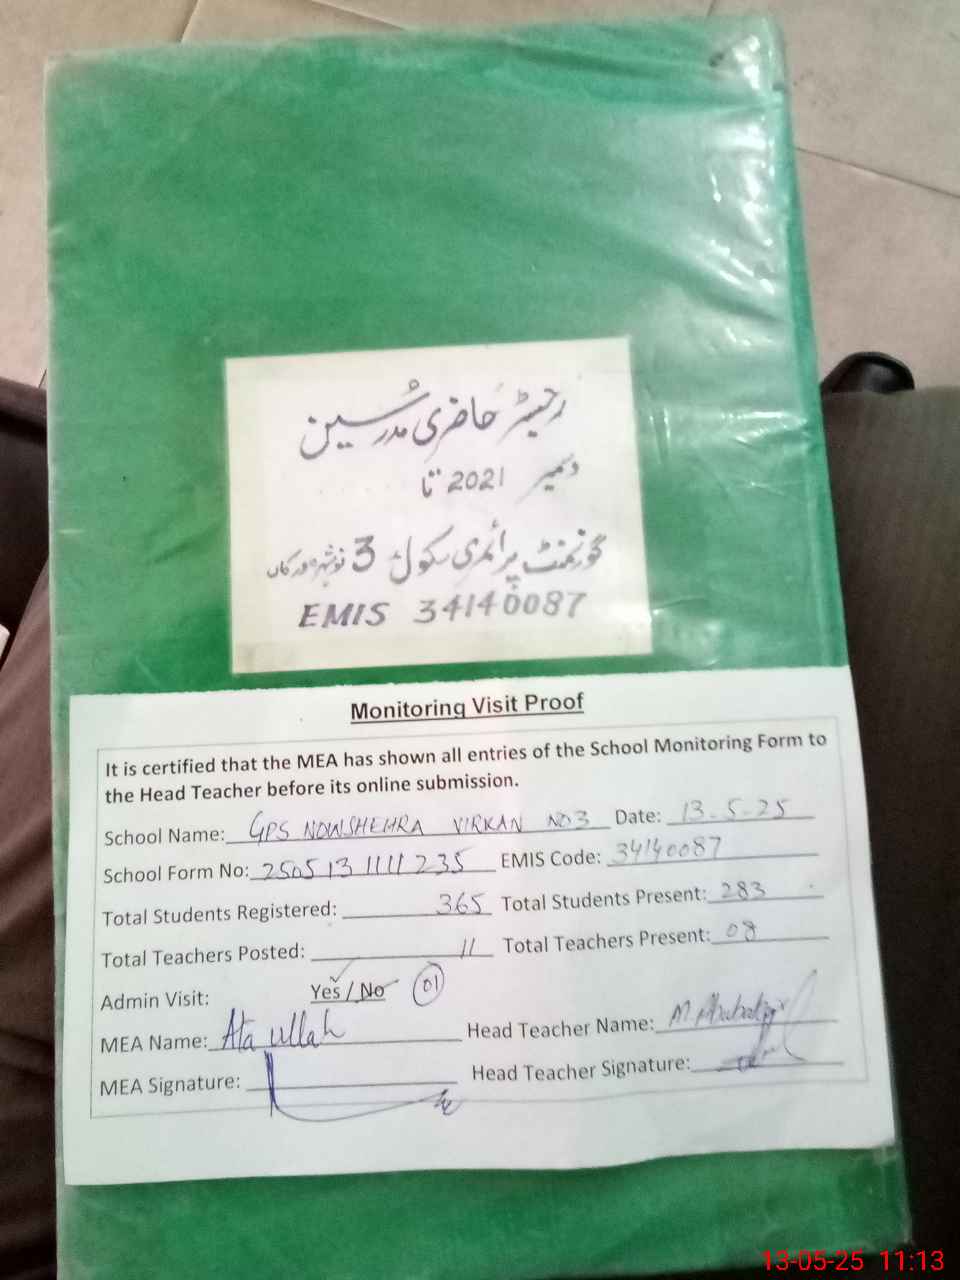 رجسٹر حاضری مدرسین
دسمبر 2021 تا
گورنمنٹ پرائمری سکول 3 نوشہرہ ورکاں
EMIS 34140087
Monitoring Visit Proof
It is certified that the MEA has shown all entries of the School Monitoring Form to
the Head Teacher before its online submission.
School Name: GPS NOWSHEHRA VIRKAN NO3 Date: 13-5-25
School Form No: 2505131111235 EMIS Code: 34140087
Total Students Registered: 365 Total Students Present: 283
Total Teachers Posted: 11 Total Teachers Present: 08
Admin Visit: Yes / No 01
MEA Name: Ata ullah Head Teacher Name: M.
MEA Signature: Head Teacher Signature:
13-05-25 11:13